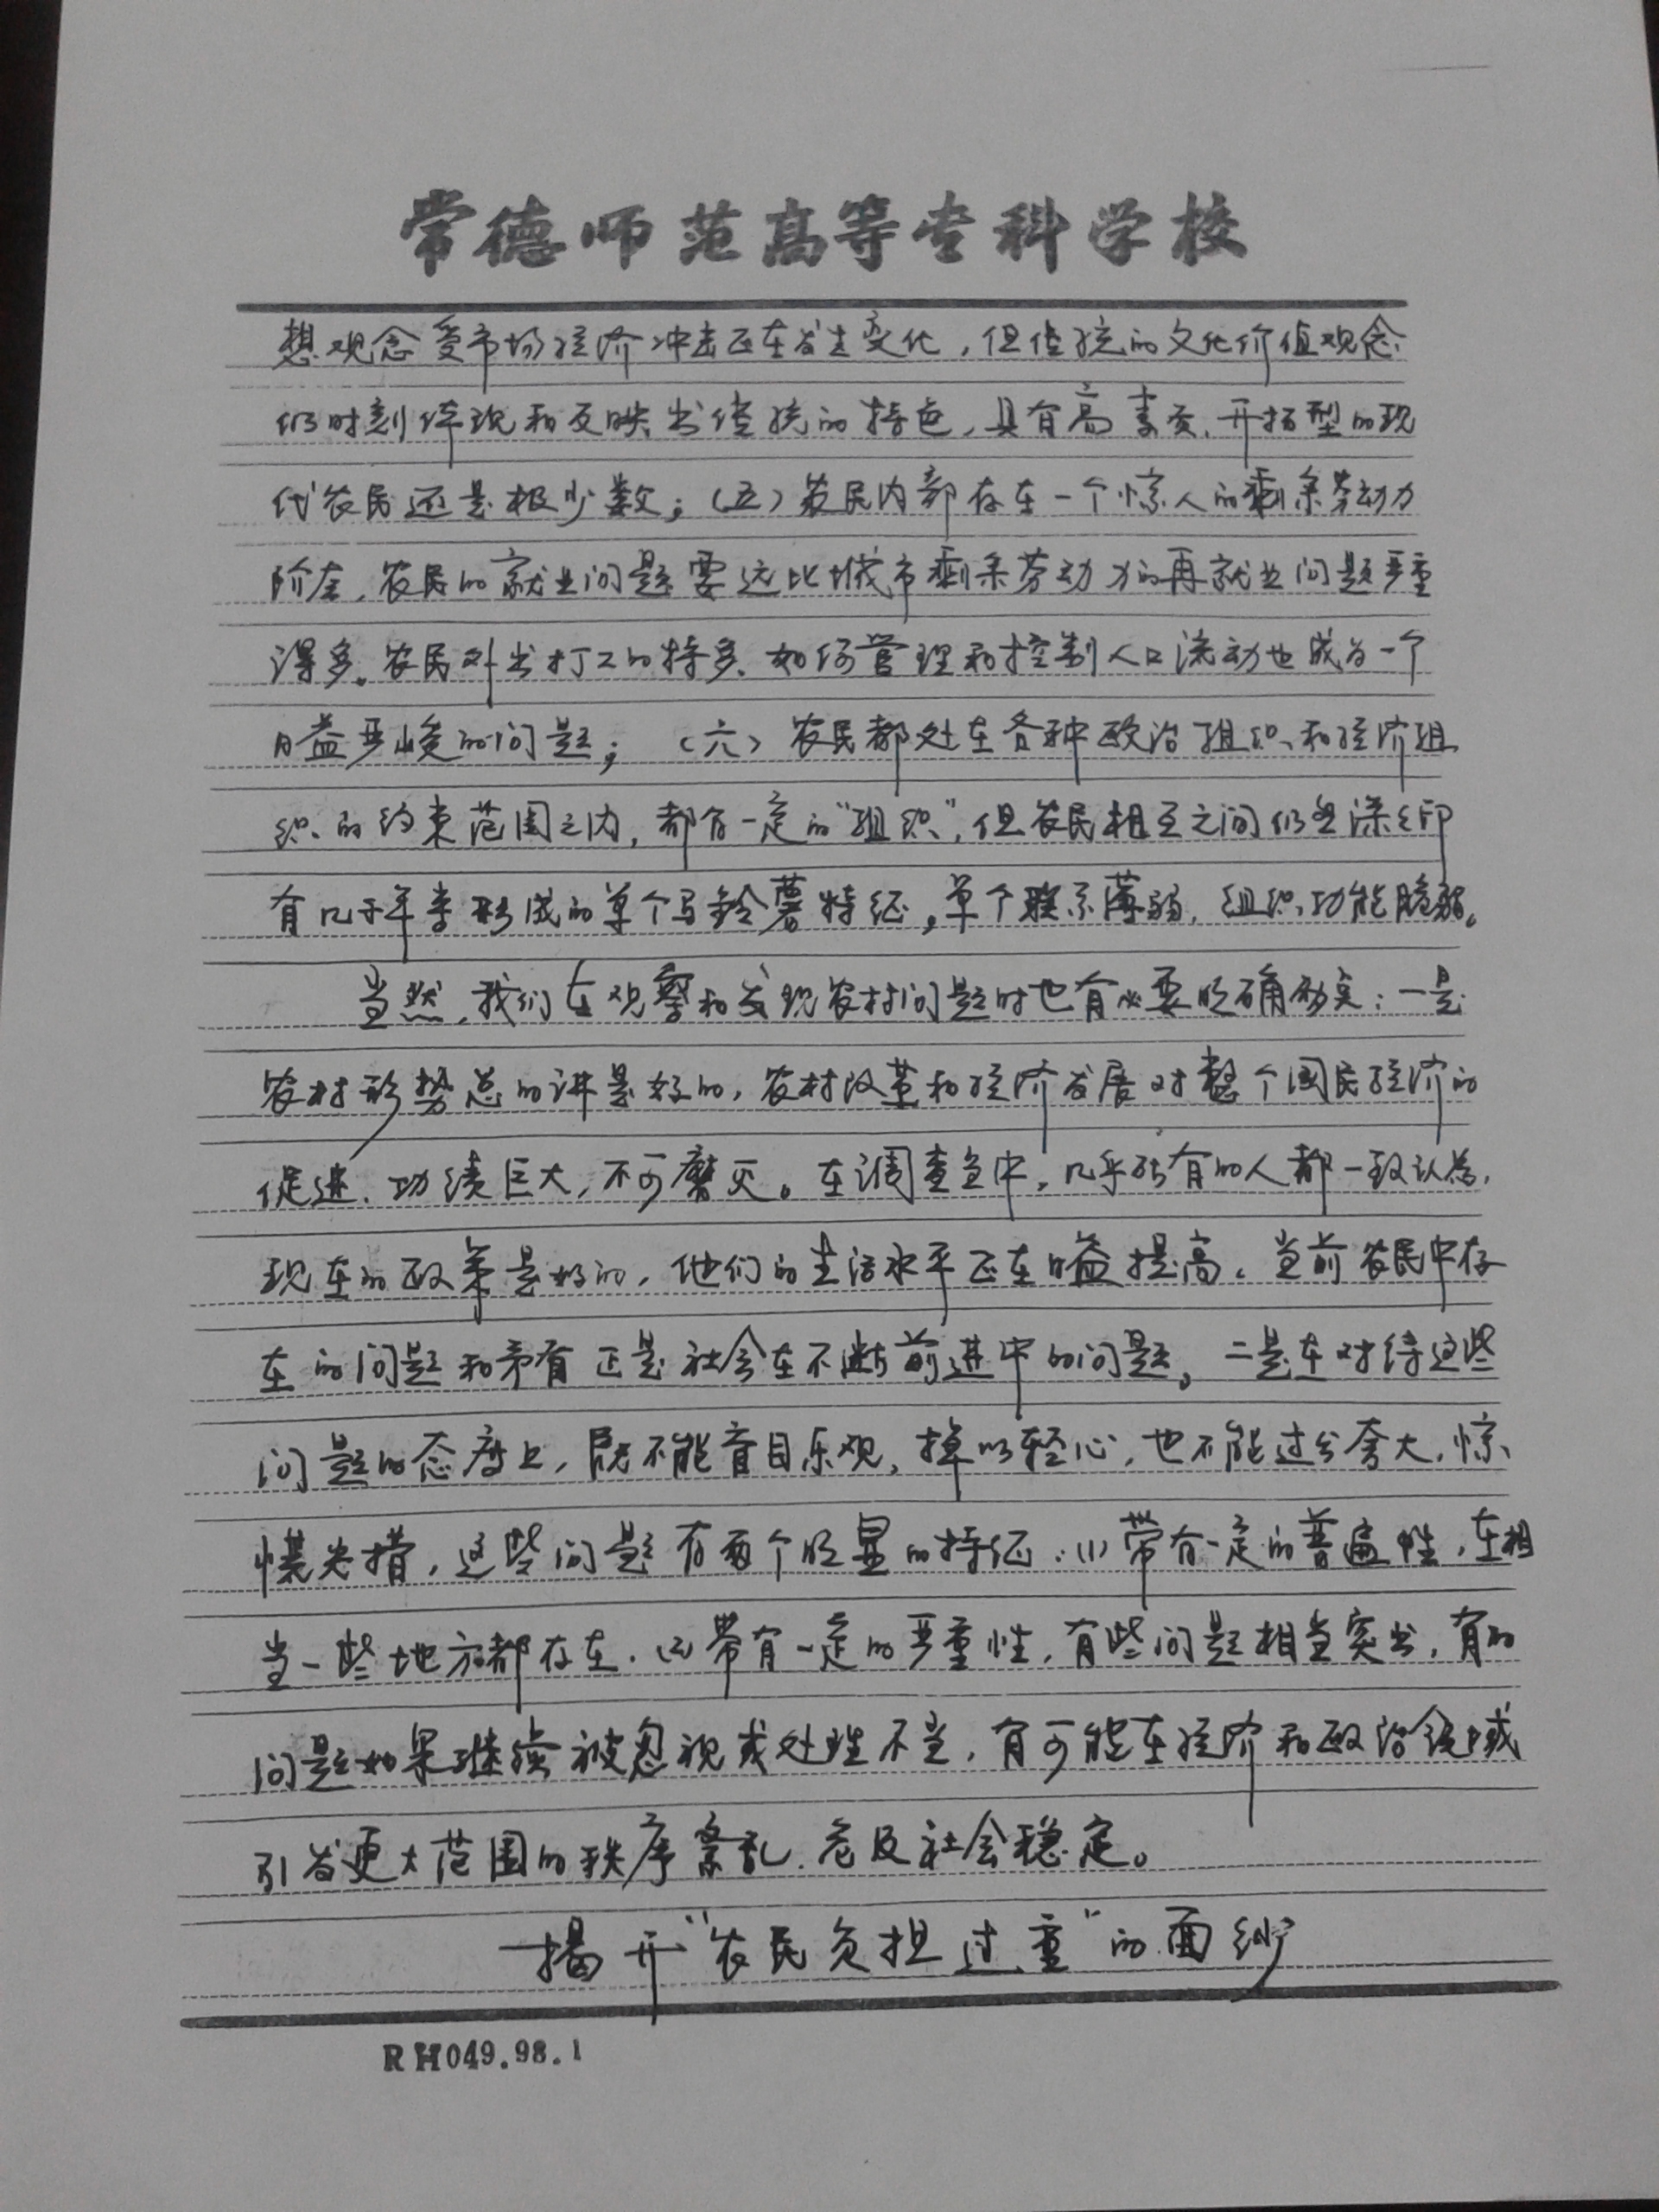 常德师范高等专科学校
想观念受市场经济冲击正在发生变化，但传统的文化价值观念
仍时刻体现和反映出传统的特色，具有高素质、开拓型的现
代农民还是极少数；（五）农民内部存在一个惊人的剩余劳动力
阶层，农民的就业问题要远比城市剩余劳动力的再就业问题严重
得多。农民外出打工的特多，如何管理和控制人口流动也成为一个
日益严峻的问题；（六）农民都处在各种政治组织和经济组
织的约束范围之内，都有一定的“组织”，但农民相互之间仍然深深印
有几千年来形成的单个马铃薯特征，单个联系薄弱，组织功能脆弱。
当然，我们在观察和发现农村问题时也有必要明确两点：一是
农村形势总的讲是好的，农村改革和经济发展对整个国民经济的
促进，功绩巨大，不可磨灭。在调查当中，几乎所有的人都一致认为，
现在的政策是好的，他们的生活水平正在日益提高。当前农民中存
在的问题和矛盾正是社会在不断前进中的问题。二是在对待这些
问题的态度上，既不能盲目乐观，掉以轻心，也不能过分夸大，惊
慌失措，这些问题有两个明显的特征：(1)带有一定的普遍性，在相
当一些地方都存在。(2)带有一定的严重性，有些问题相当突出，有的
问题如果继续被忽视或处理不当，有可能在经济和政治领域
引发更大范围的秩序紊乱，危及社会稳定。
揭开“农民负担过重”的面纱
RH049.98.1